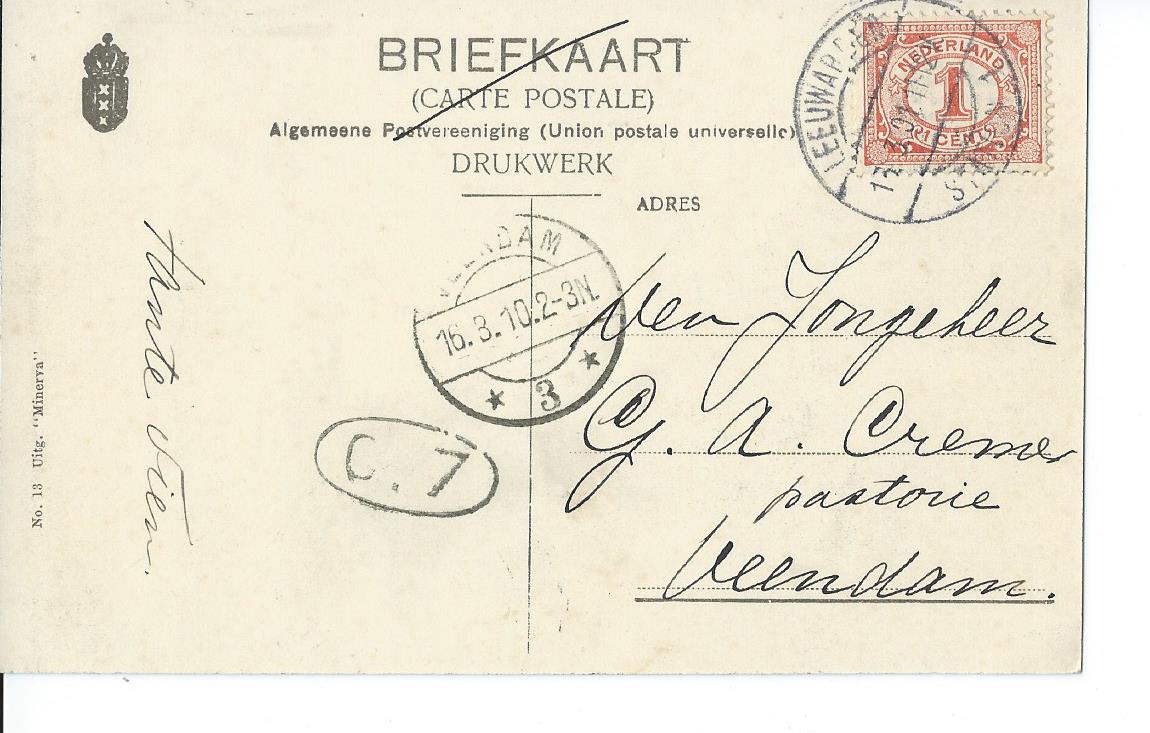 BRIEFKAART
(CARTE POSTALE)
Algemeene Postvereeniging (Union postale universelle)
DRUKWERK
ADRES
NEDERLAND
1
1 CENT
LEEUWARDEN
VEENDAM
16.3.10.2-3N.
3
C.7
Den Jongeheer
G. A. Cremer
pastorie
Veendam.
Tante Sien.
No. 13 Uitg. "Minerva"